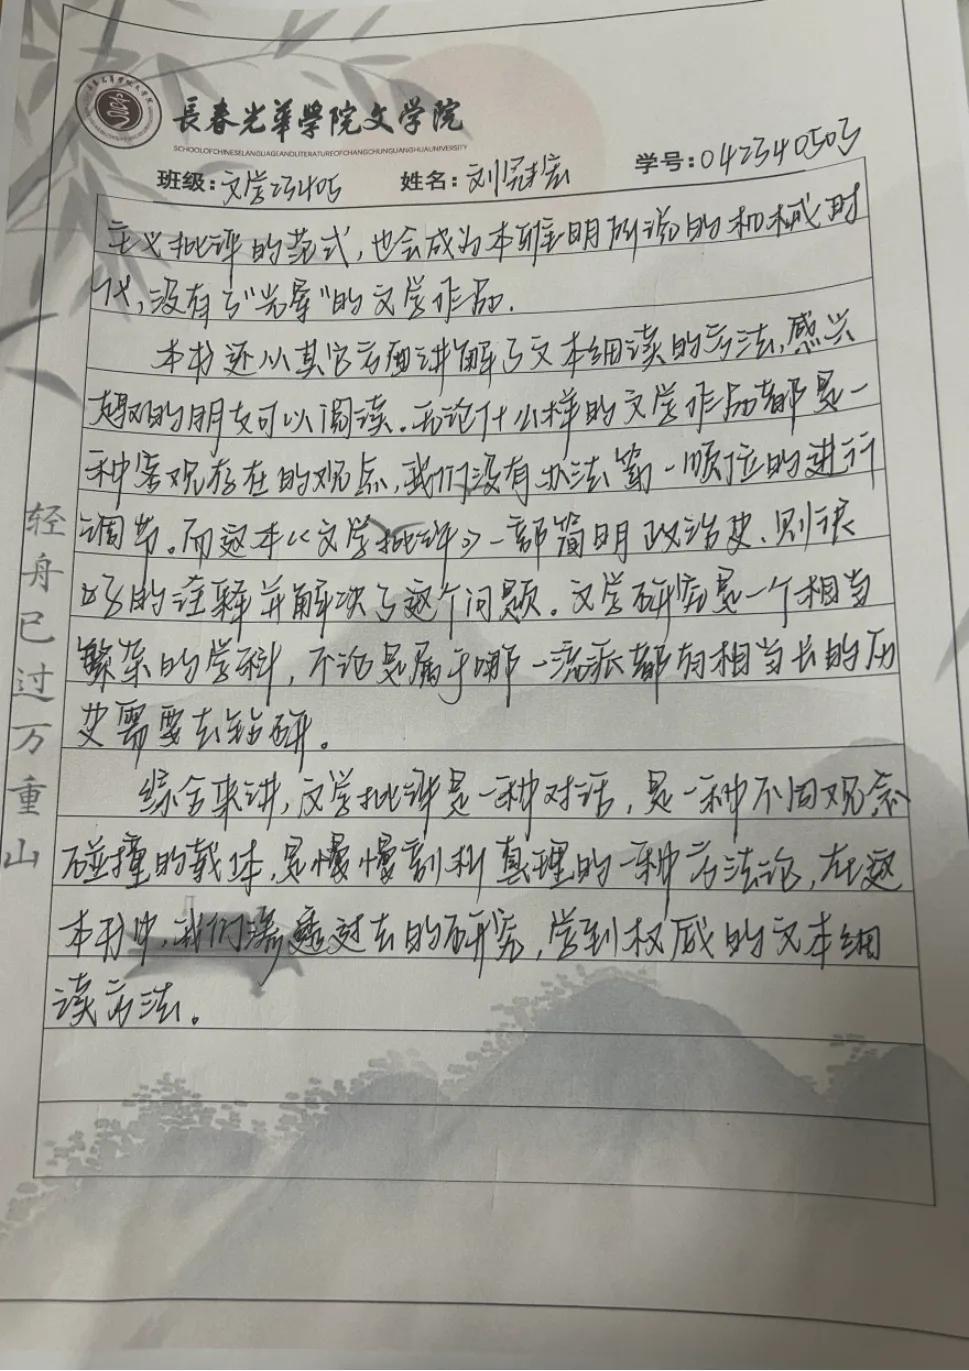 長春光華學院文学院
SCHOOLOFCHINESELANGUAGEANDLITERATUREOFCHANGCHUNGUANGHUAUNIVERSITY
班级:文学23405 姓名:刘冠宏 学号:042340503
主义批评的范式,也会成为本雅明所说的机械时
代,没有了“光晕”的文学作品.
本书还从其它方面讲解了文本细读的方法,感兴
趣的朋友可以阅读。无论什么样的文学作品都是一
种客观存在的观点,我们没有办法第一顺位的进行
调节。而这本《文学批评》一部简明政治史、则很
好的诠释并解决了这个问题。文学研究是一个相当
繁杂的学科,不论是属于哪一流派都有相当长的历
史需要去钻研。
综合来讲,文学批评是一种对话,是一种不同观念
碰撞的载体,是慢慢到利真理的一种方法论,在这
本书中,我们渗透过去的研究,学到权威的文本细
读方法。
轻舟已过万重山